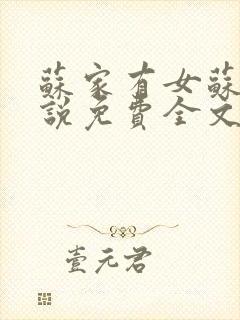 蘇家有女蘇
說免費全文
壹元君